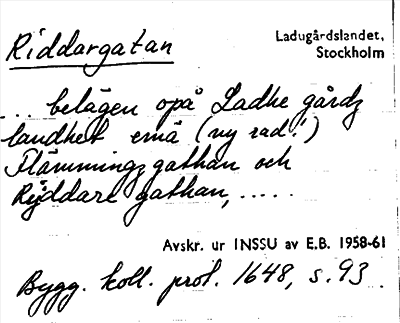 Riddargatan
Ladugårdslandet,
Stockholm
... belägen opå Ladhe gårdz
landhet emä (ny rad!)
Flämmingz gathan och
Ryddare gathan, .....
Avskr. ur INSSU av E.B. 1958-61
Bygg. koll. prot. 1648, s. 93.